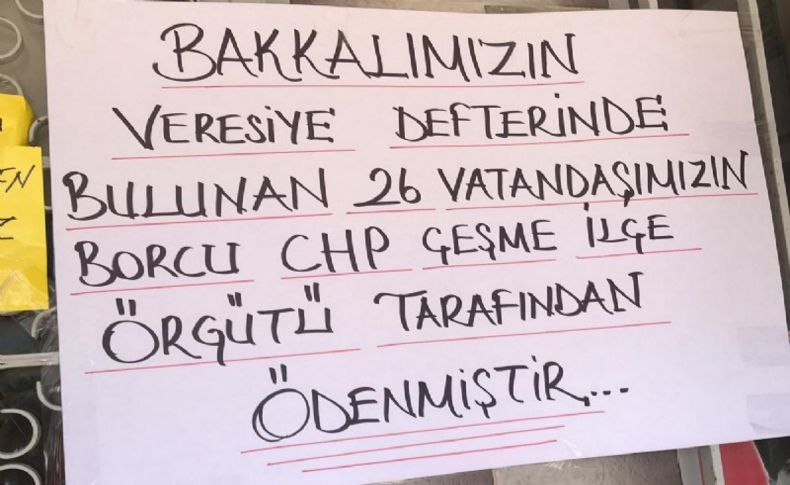 BAKKALIMIZIN
VERESİYE DEFTERİNDE
BULUNAN 26 VATANDAŞIMIZIN
BORCU CHP ÇEŞME İLÇE
ÖRGÜTÜ TARAFINDAN
ÖDENMİŞTİR...